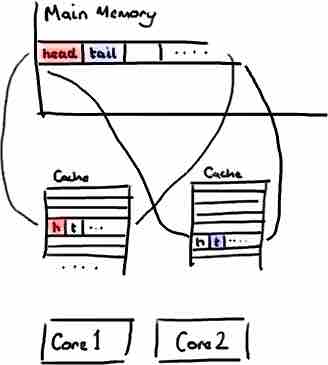 Main Memory
head tail ....
Cache
Cache
h t ...
h t ....
....
Core 1
Core 2